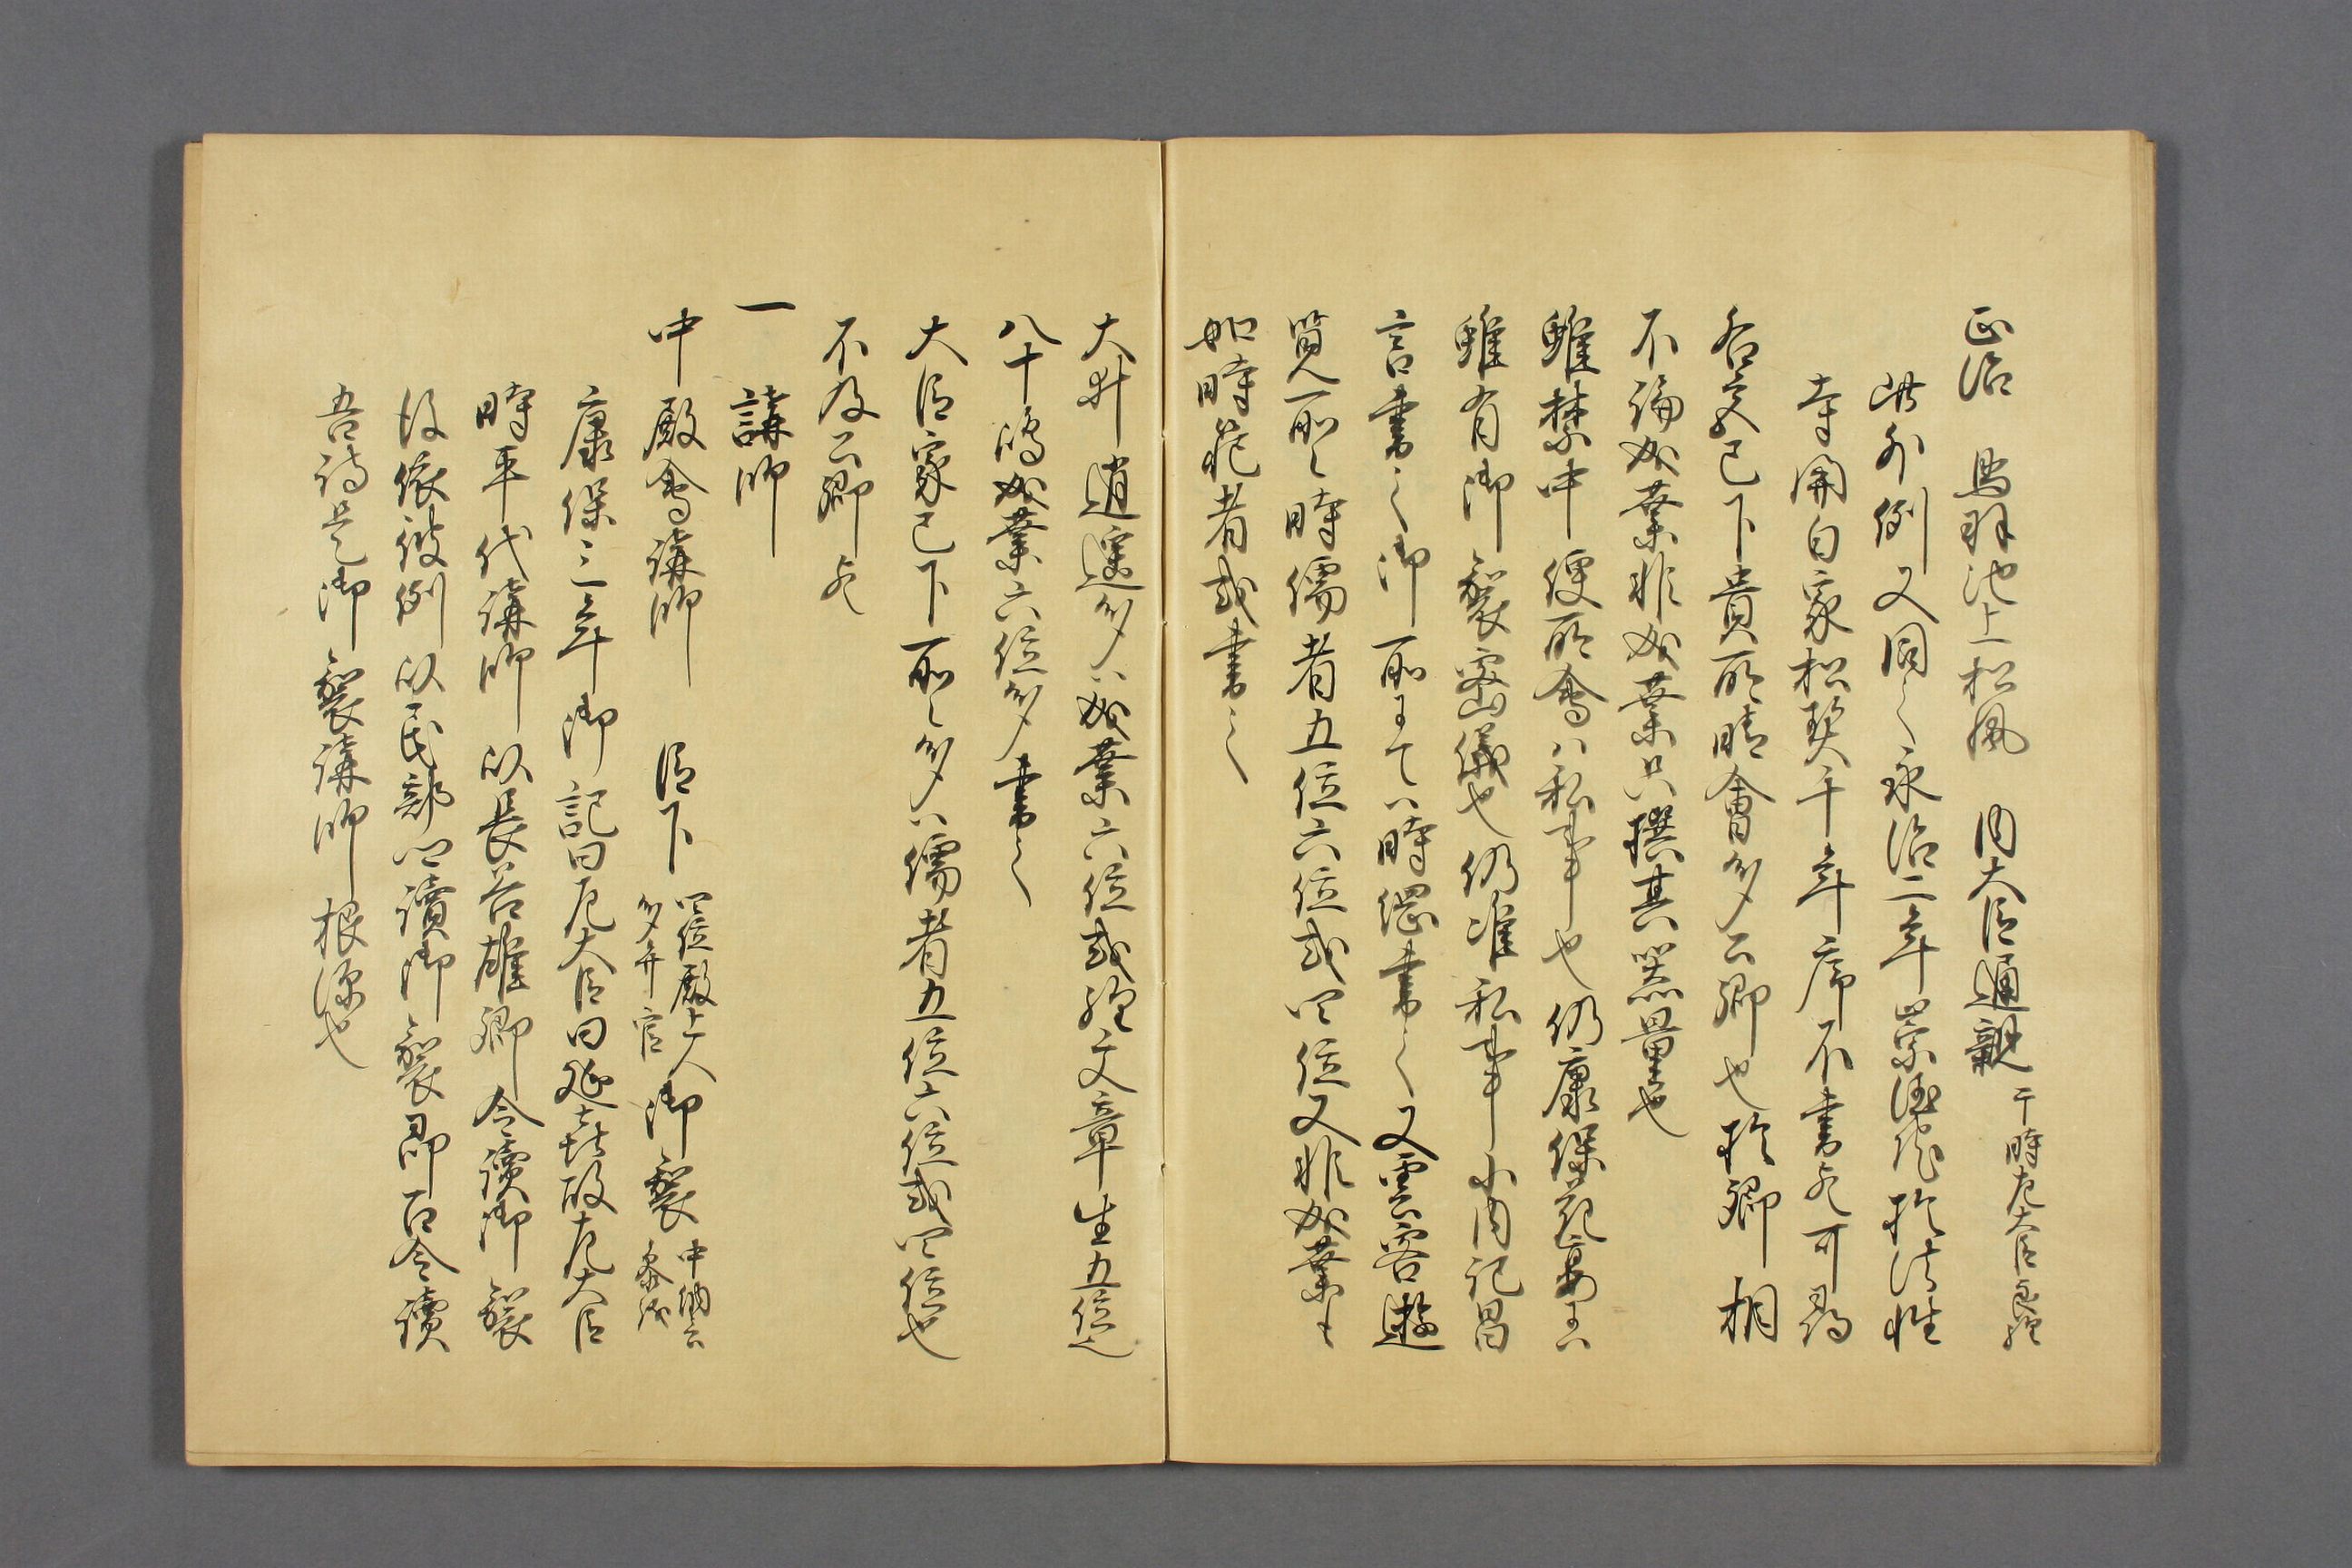 正治　鳥羽池上松風　内大臣通親　于時左大臣良経
此外例又同之永治二年崇徳院於法性
寺関白家松契千年序不書之可尋
各交已下貴所晴會多公卿也於卿相
不論成業非成業只撰其器量也
雖禁中便所會ハ私事也仍康保花宴ニハ
雖有御製密儀也仍准私事少内記昌
言書之御所ニテハ時綱書之又雲客逍
覧所〻時儒者五位六位或四位又非成業モ
如時範者或書之
大井逍遥多ハ成業六位或経文章生五位之
八十嶋成業六位多書之
大臣家已下所〻多ハ儒者五位六位或四位也
不及公卿之
一　講師
中殿會講師　臣下　四位殿上人多弁官　御製　中納言参議
康保三年御記曰左大臣曰延喜故左大臣
時平代講師以長谷雄卿令讀御製
後依彼例以民部卿讀御製即召令讀
吾詩是御製講師根源也